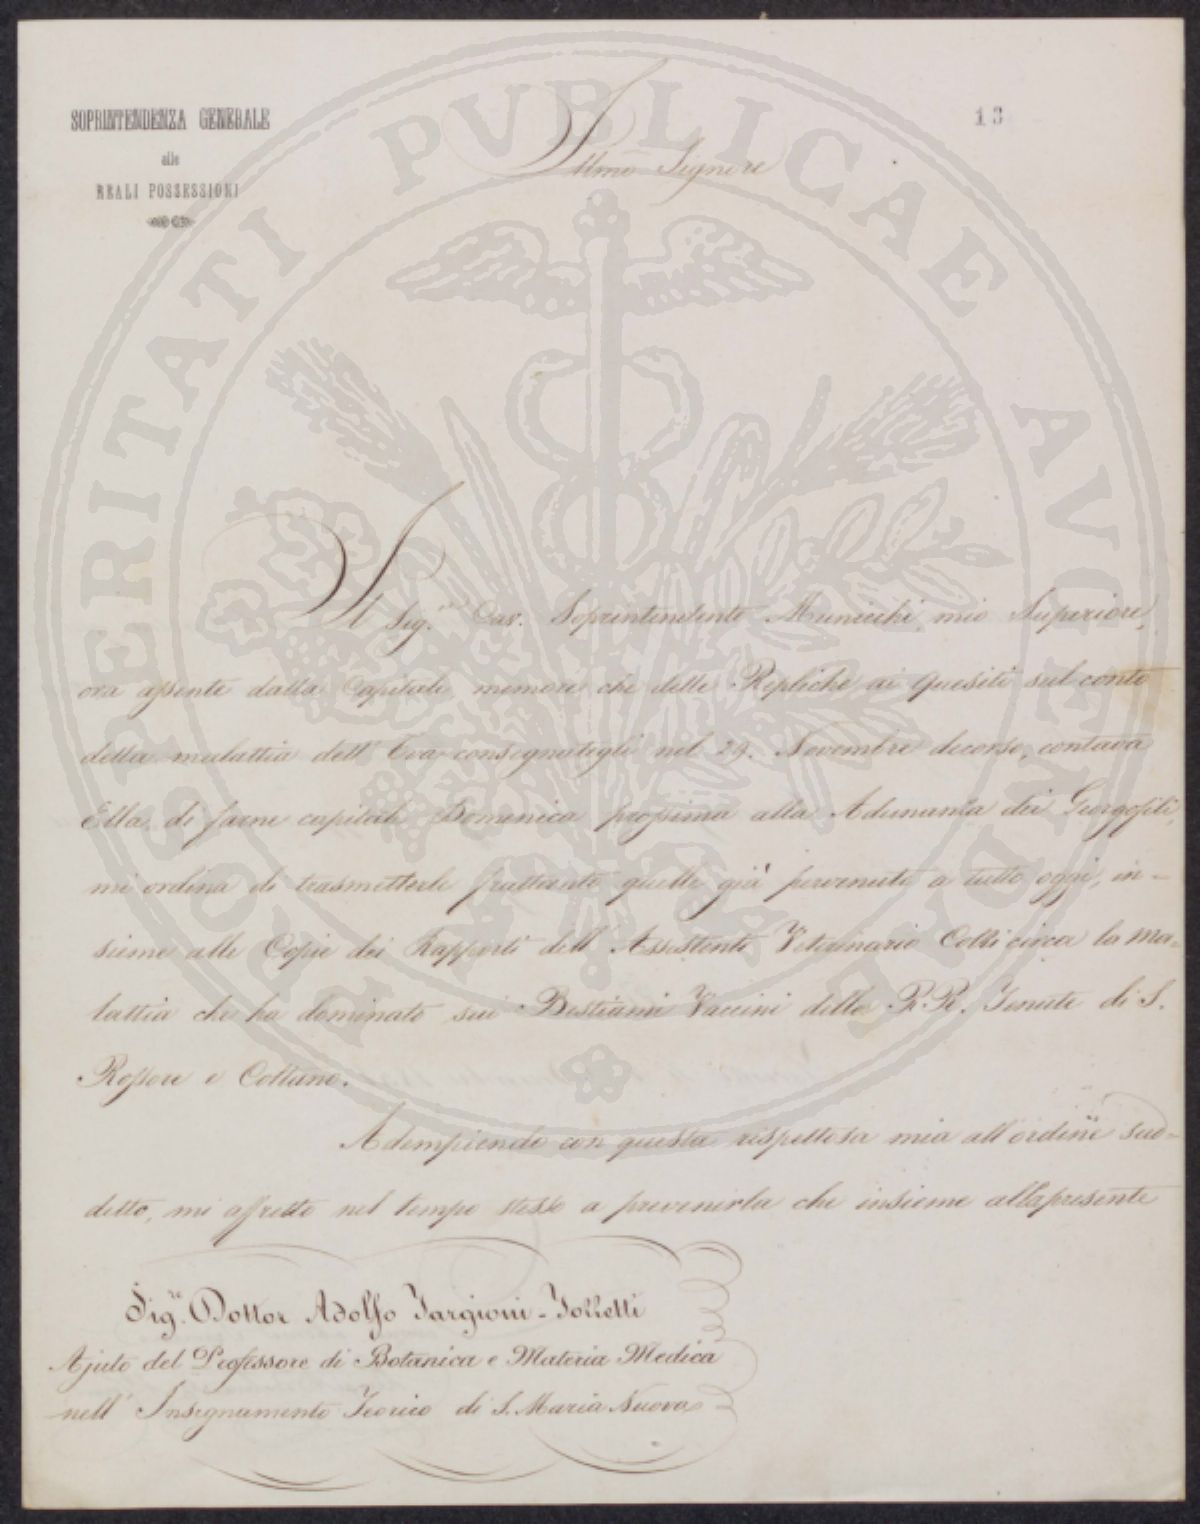 SOPRINTENDENZA GENERALE
alle
REALI POSSESSIONI
13
Illmo Signore
Il Sig.re Cav. Soprintendente Municchi mio Superiore,
ora assente dalla Capitale, memore che delle Repliche ai Quesiti sul conto
della malattia dell' Uva consegnategli nel 29. Novembre decorso, contava
Ella di farne capitale Domenica prossima alla Adunanza dei Georgofili,
mi ordina di trasmetterle frattanto quelle già pervenute a tutto oggi, in=
sieme alle Copie dei Rapporti dell' Assistente Veterinario Colli circa la ma=
lattia che ha dominato sui Bestiami Vaccini delle R.R. Tenute di S.
Rossore e Coltano.
Adempiendo con questa rispettosa mia all' ordine sud=
detto, mi affretto nel tempo stesso a prevenirla che insieme alla presente
Sig.re Dottor Adolfo Targioni-Tozzetti
Ajuto del Professore di Botanica e Materia Medica
nell' Insegnamento Teorico di S. Maria Nuova
PROSPERITATI PVBLICAE AVGENDAE